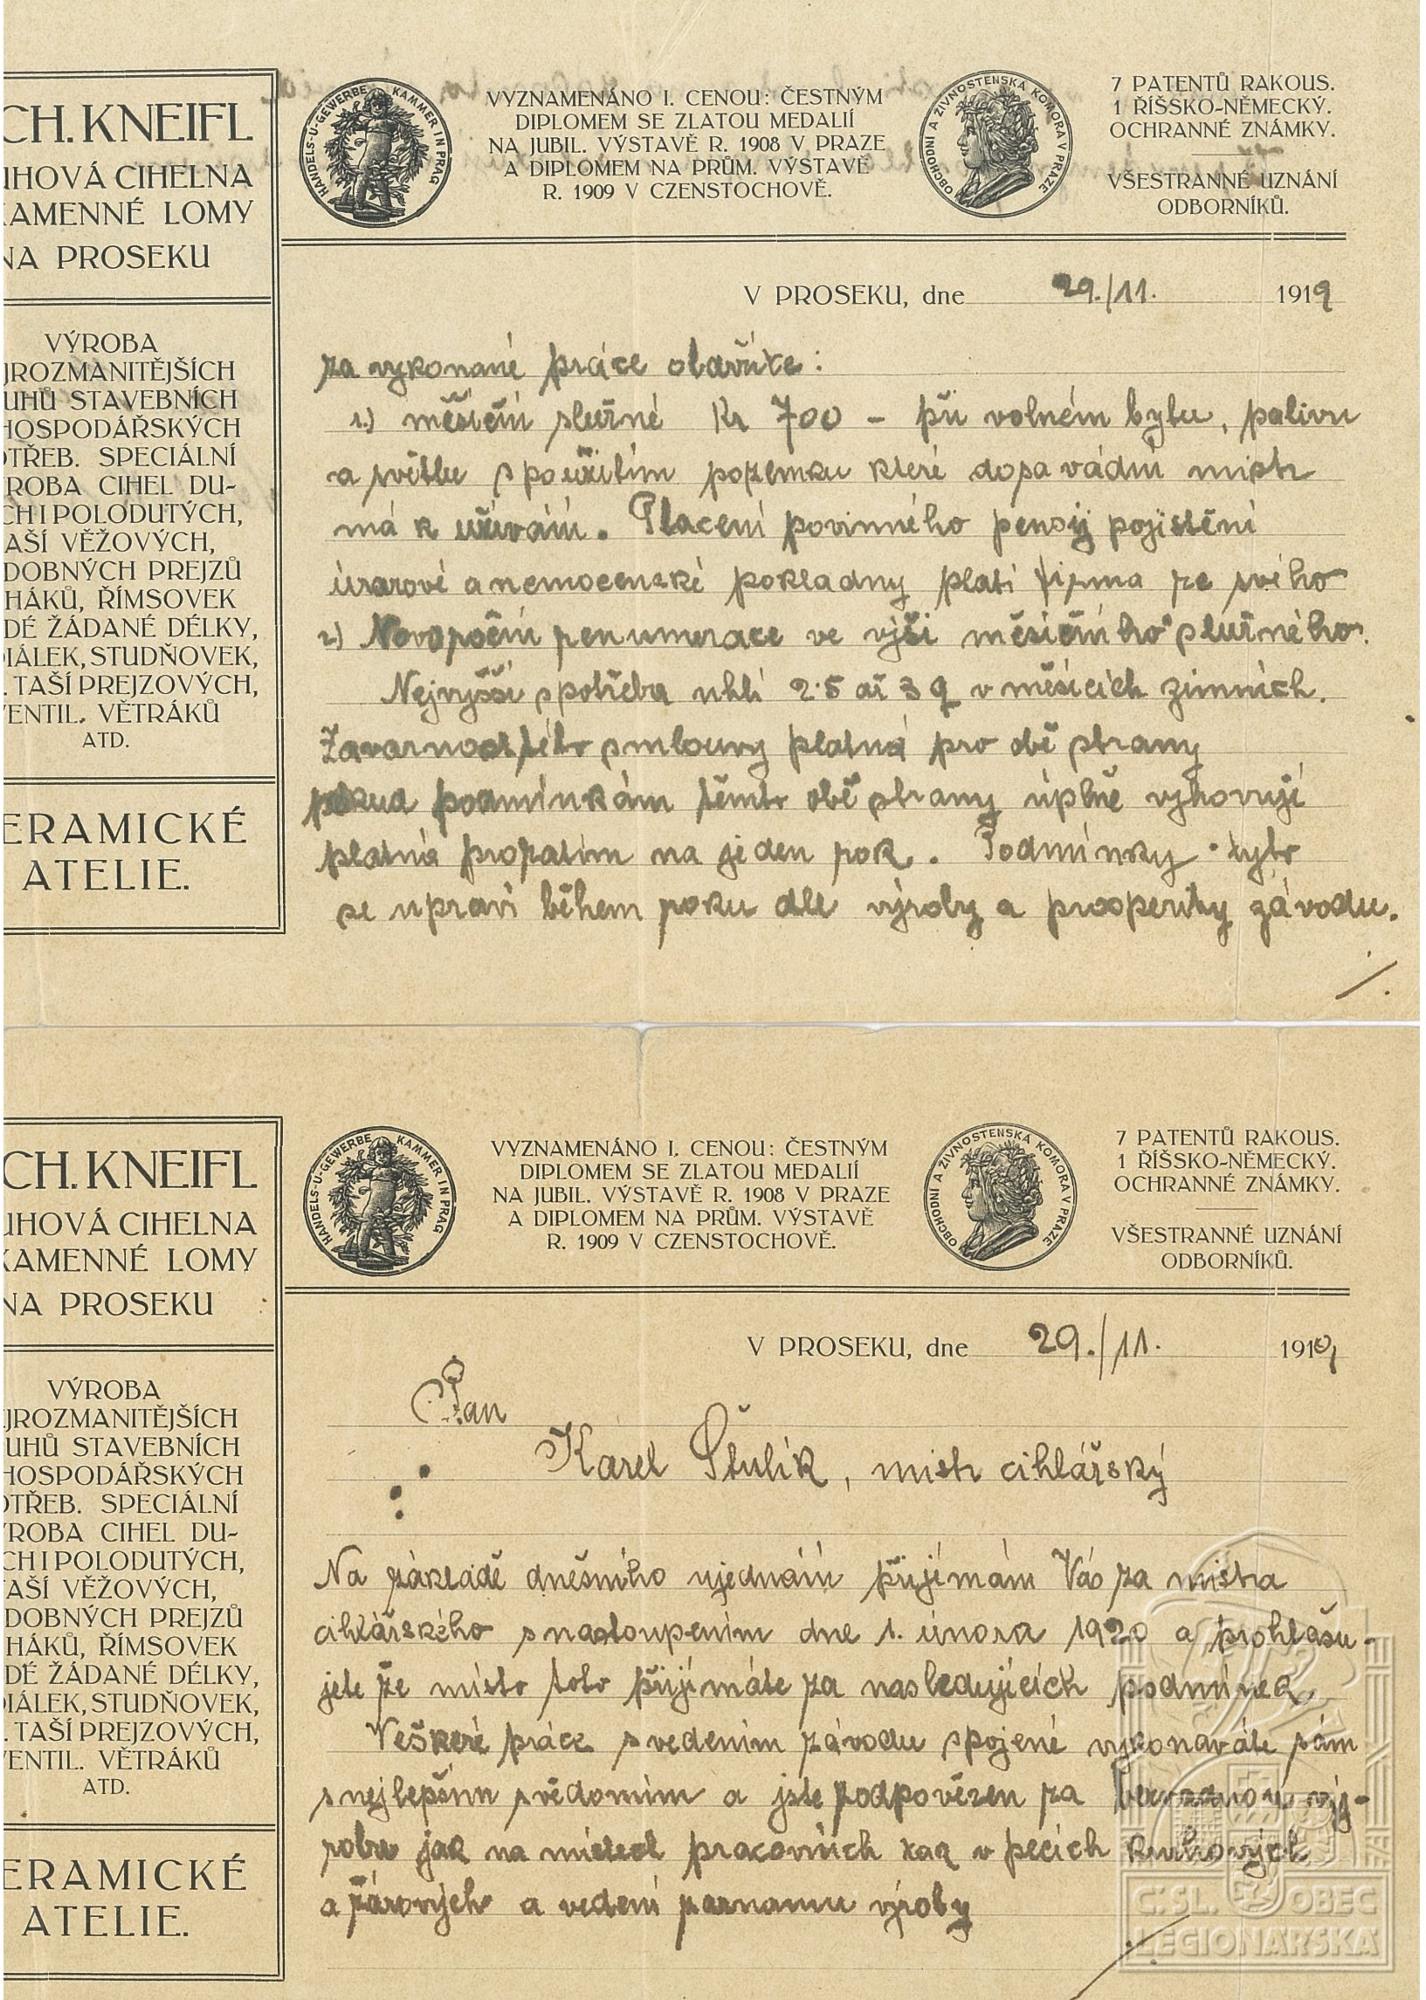 CH. KNEIFL
UHOVÁ CIHELNA
KAMENNÉ LOMY
NA PROSEKU
VÝROBA
JROZMANITĚJŠÍCH
UHŮ STAVEBNÍCH
HOSPODÁŘSKÝCH
OTŘEB. SPECIÁLNÍ
ROBA CIHEL DU-
CH I POLODUTÝCH,
AŠÍ VĚŽOVÝCH,
DOBNÝCH PREJZŮ
HÁKŮ, ŘÍMSOVEK
DÉ ŽÁDANÉ DÉLKY,
IÁLEK, STUDŇOVEK,
. TAŠÍ PREJZOVÝCH,
VENTIL. VĚTRÁKŮ
ATD.
ERAMICKÉ
ATELIE.
HANDELS-U-GEWERBE KAMMER IN PRAG
VYZNAMENÁNO I. CENOU: ČESTNÝM
DIPLOMEM SE ZLATOU MEDALIÍ
NA JUBIL. VÝSTAVĚ R. 1908 V PRAZE
A DIPLOMEM NA PRŮM. VÝSTAVĚ
R. 1909 V CZENSTOCHOVĚ.
OBCHODNÍ A ŽIVNOSTENSKÁ KOMORA V PRAZE
7 PATENTŮ RAKOUS.
1 ŘÍŠSKO-NĚMECKÝ.
OCHRANNÉ ZNÁMKY.
VŠESTRANNÉ UZNÁNÍ
ODBORNÍKŮ.
V PROSEKU, dne 29./11. 1919
za vykonané práce obdržíte:
1.) měsíční služné Kr 700 – při volném bytu, palivu
a světlu s použitím pozemku které dopavádní mistr
má k užívání. Placení povinného pensij pojištění
úrazové a nemocenské pokladny platí firma ze svého
2.) Novopoční renumerace ve výši měsíčního služného.
Nejvyšší spotřeba uhlí 2·5 až 3 q v měsících zimních.
Zavaznost této smlouvy platná pro obě strany
pokud podmínkám těmto obě strany úplně vyhovují
platná prozatím na jeden rok. Podmínky tyto
se upraví během roku dle výroby a prosperity závodu.
/.
CH. KNEIFL
UHOVÁ CIHELNA
KAMENNÉ LOMY
NA PROSEKU
VÝROBA
JROZMANITĚJŠÍCH
UHŮ STAVEBNÍCH
HOSPODÁŘSKÝCH
OTŘEB. SPECIÁLNÍ
ÝROBA CIHEL DU-
CH I POLODUTÝCH,
AŠÍ VĚŽOVÝCH,
DOBNÝCH PREJZŮ
HÁKŮ, ŘÍMSOVEK
DÉ ŽÁDANÉ DÉLKY,
IÁLEK, STUDŇOVEK,
. TAŠÍ PREJZOVÝCH,
VENTIL. VĚTRÁKŮ
ATD.
ERAMICKÉ
ATELIE.
HANDELS-U-GEWERBE KAMMER IN PRAG
VYZNAMENÁNO I. CENOU: ČESTNÝM
DIPLOMEM SE ZLATOU MEDALIÍ
NA JUBIL. VÝSTAVĚ R. 1908 V PRAZE
A DIPLOMEM NA PRŮM. VÝSTAVĚ
R. 1909 V CZENSTOCHOVĚ.
OBCHODNÍ A ŽIVNOSTENSKÁ KOMORA V PRAZE
7 PATENTŮ RAKOUS.
1 ŘÍŠSKO-NĚMECKÝ.
OCHRANNÉ ZNÁMKY.
VŠESTRANNÉ UZNÁNÍ
ODBORNÍKŮ.
V PROSEKU, dne 29./11. 1919
Pan
Karel Štulík, mistr cihlářský
Na základě dnešního ujednání přijímám Vás za mistra
cihlářského s nastoupením dne 1. února 1920 a prohlašu-
jete že místo toto přijímáte za nasledujících podmínek.
Veškeré práce s vedením závodu spojené vykonáváte sám
s nejlepším svědomím a jste zodpověden za bezvadnou vý-
robu jak na místech pracovních tak v pecích kruhových
a žárových a vedení zaznamu výroby
Č.SL. OBEC
LEGIONÁŘSKÁ